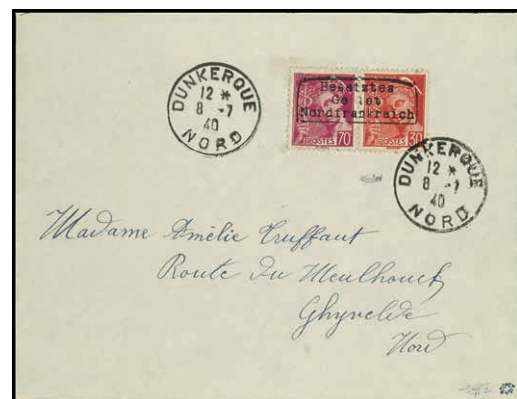 DUNKERQUE
12 *
8 -7
40
NORD
Besetztes
Gebiet
Nordfrankreich
POSTES 70
POSTES 30
DUNKERQUE
12 *
8 -7
40
NORD
Madame Amélie Truffaut
Route du Meulhouck
Ghyvelde
Nord